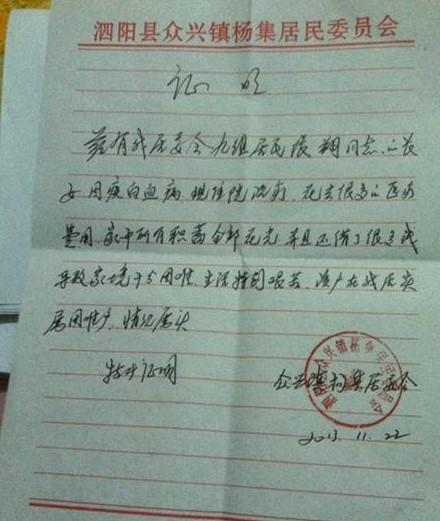 泗阳县众兴镇杨集居民委员会
证明
兹有我居委会九组居民 翔同志的长
女因病白血病现住院治疗,花去很多的医药
费用,家中所有积蓄全部花光并且还借了很多钱
导致家境十分困难,生活特别艰苦,该户在我居实
属困难户,情况属实
特此证明
众兴镇杨集居委会
2013.11.22